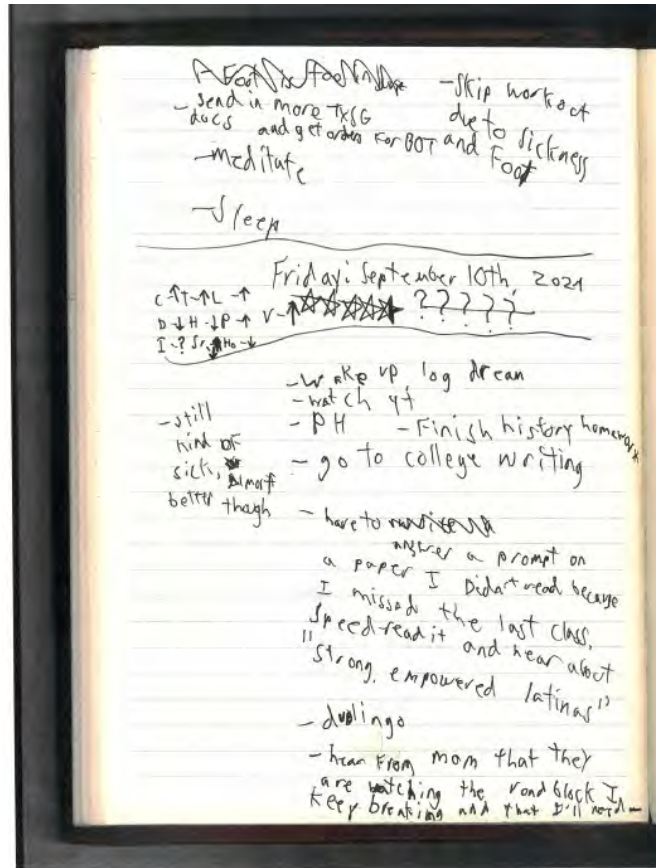 - Send in more TXSG
docs and get orders for BOT and Foot
- Skip workout
due to sickness
- meditate
- Sleep
Friday: September 10th, 2021
C-↑T-↑L-↑
D-↓H-↓P-↑ V-↑ ☆☆☆☆★ ? ? ? ? ?
I-? Sr- Ho-↓
- Wake up, log dream
- watch yt
- PH - Finish history homework
- go to college writing
- still
kind of
sick, almost
better though
- have to
answer a prompt on
a paper I Didn't read because
I missed the last class,
Speed-read it and hear about
"strong, empowered latinas"
- duolingo
- hear from mom that they
are watching the road block I
keep breaking and that I'll need -